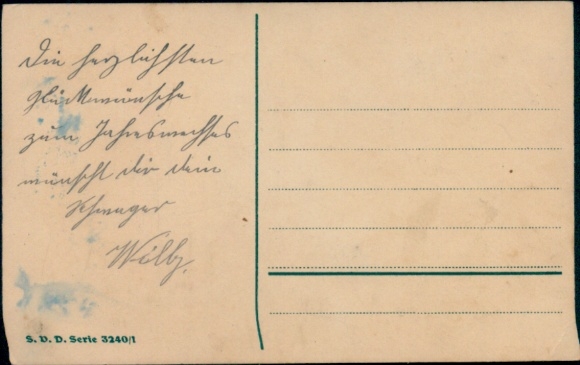 Die herzlichsten
Glückwünsche
zum Jahreswechsel
wünscht dir dein
Schwager
Willy.
S. V. D. Serie 3240/1